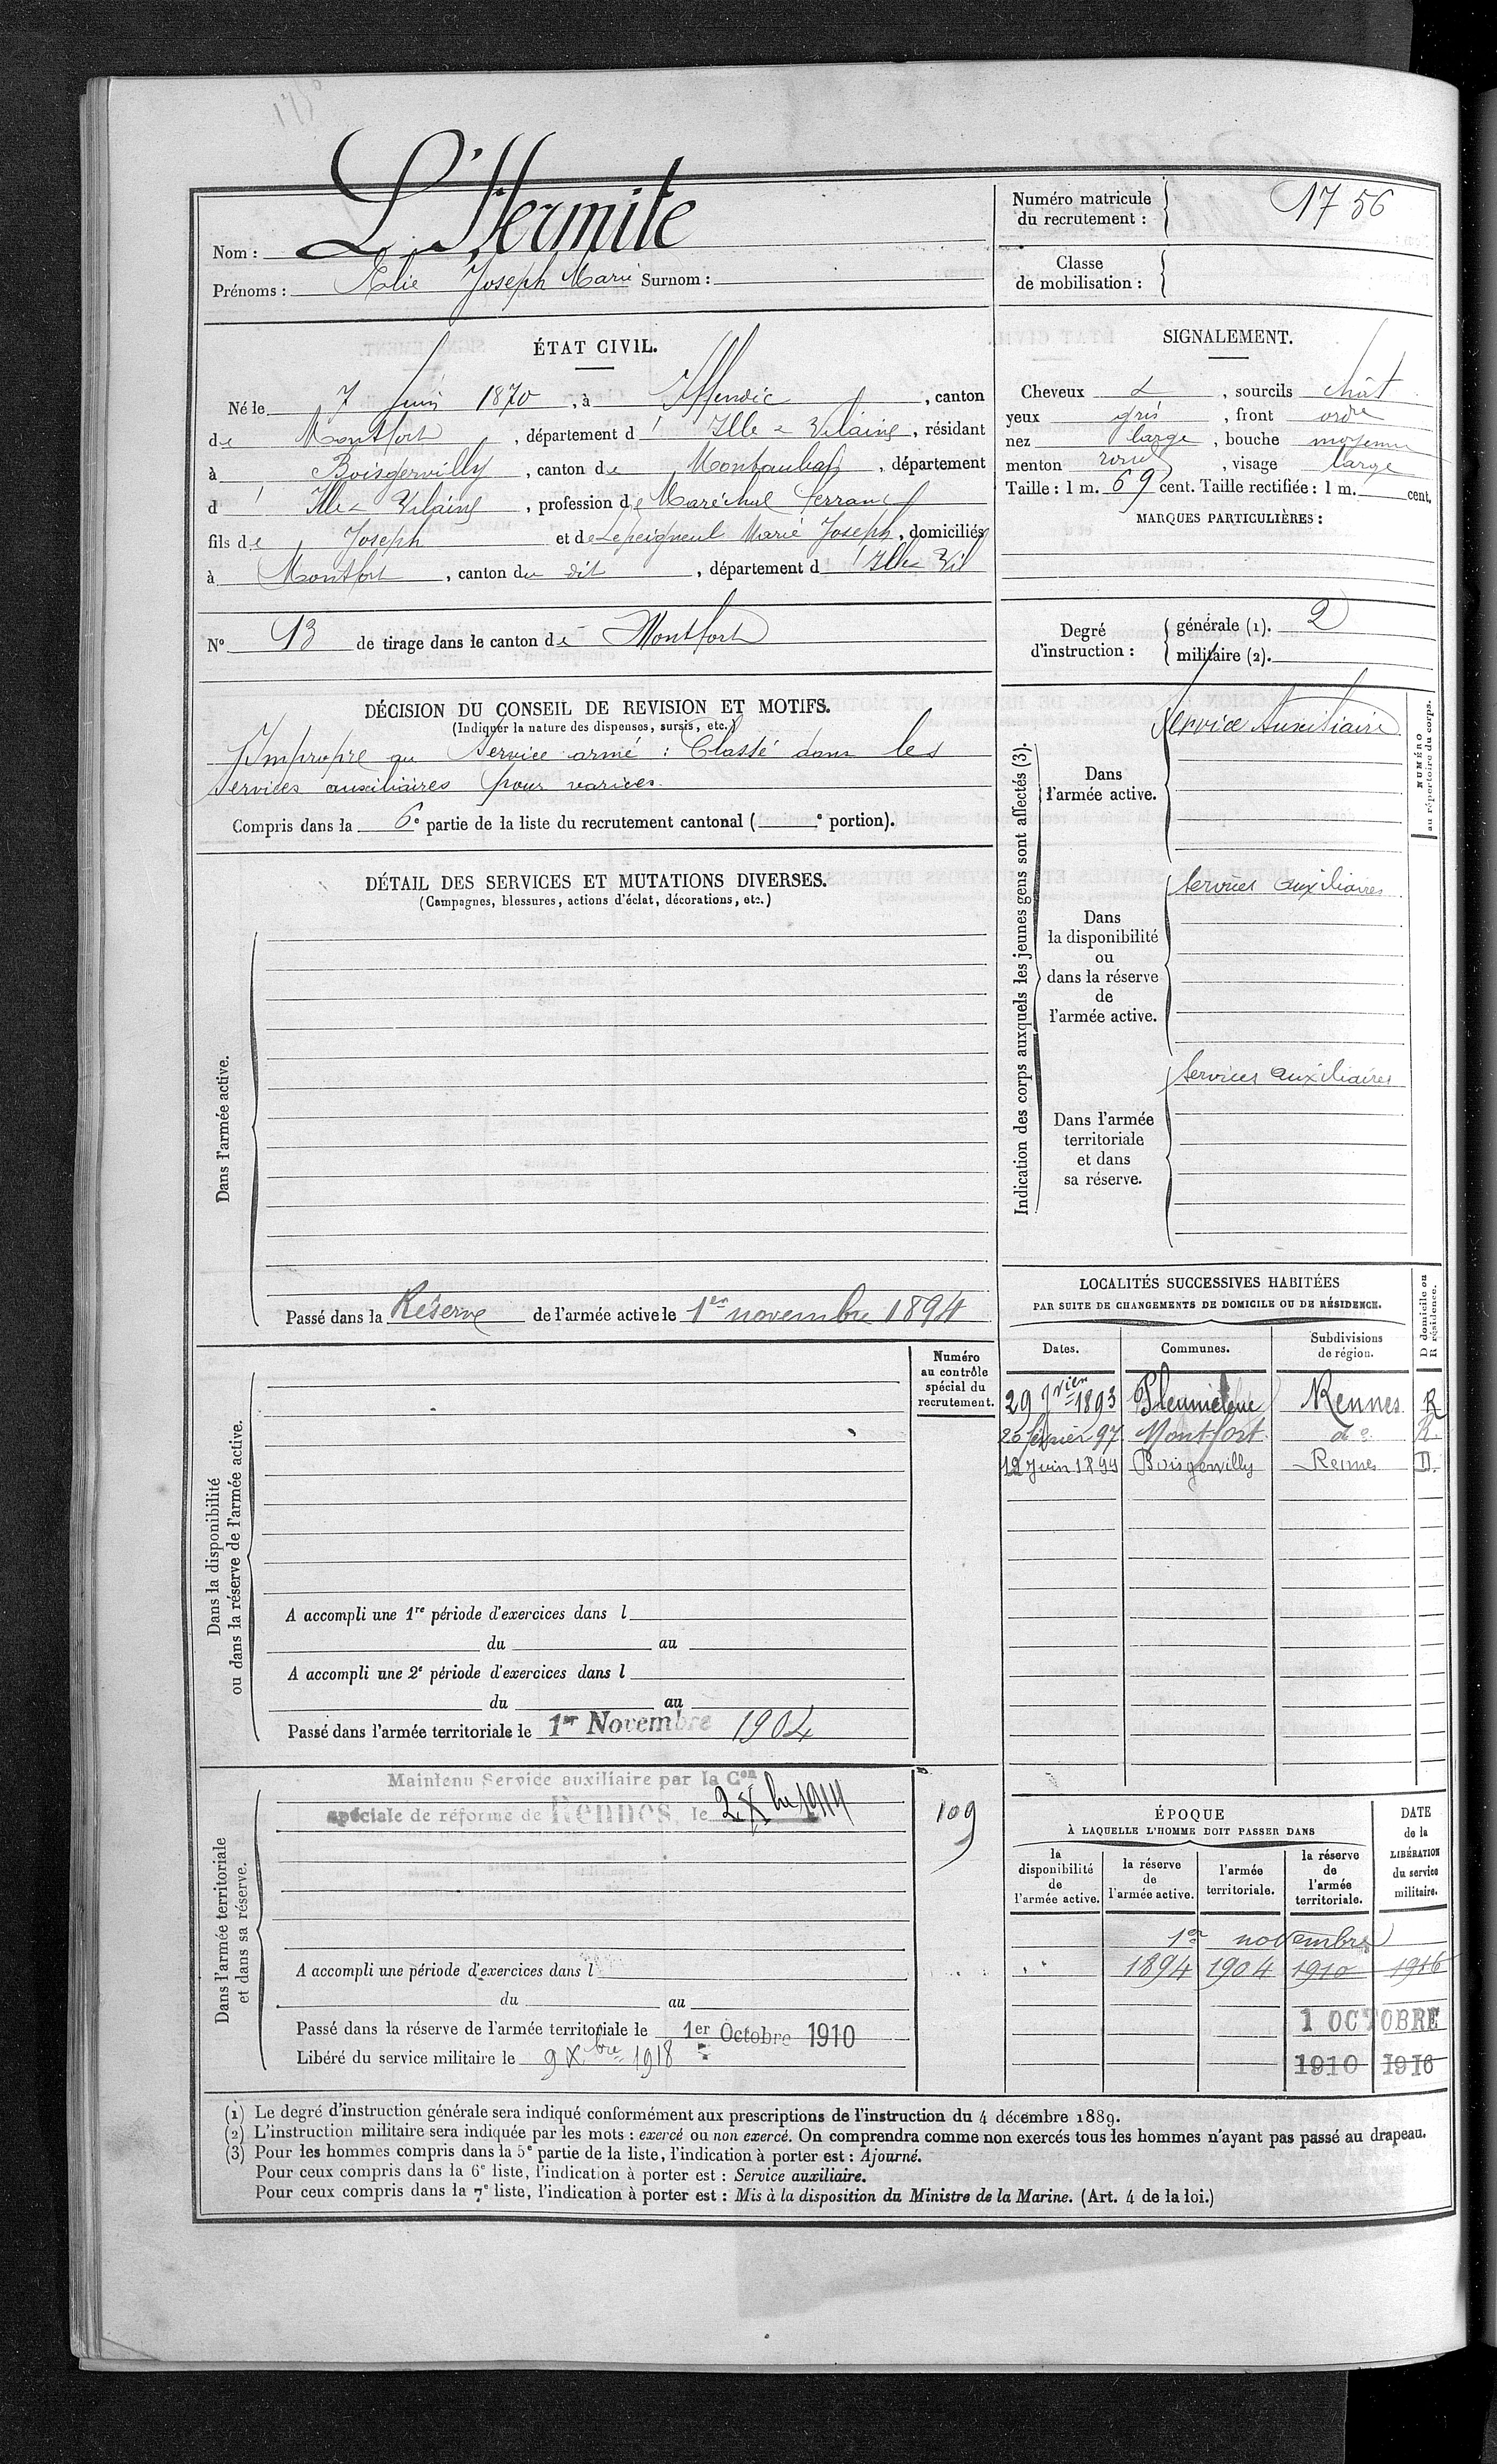 L'Hermite
Nom :
Prénoms : Elie Joseph Marie Surnom :
Numéro matricule
du recrutement : 1756
Classe
de mobilisation :
ÉTAT CIVIL.
Né le 7 Juin 1870, à Iffendic, canton
de Montfort, département d'Ille & Vilaine, résidant
à Boisgervilly, canton de Montauban, département
d'Ille & Vilaine, profession de Maréchal ferrant
fils de Joseph et de Lepeigneul Marie Joseph, domiciliés
à Montfort, canton du dit, département d'Ille & Vil
N° 13 de tirage dans le canton de Montfort
SIGNALEMENT.
Cheveux &, sourcils chât
yeux gris, front ordre
nez large, bouche moyenne
menton rond, visage large
Taille : 1 m. 69 cent. Taille rectifiée : 1 m. cent.
MARQUES PARTICULIÈRES :
Degré
d'instruction :
générale (1). 2
militaire (2).
DÉCISION DU CONSEIL DE REVISION ET MOTIFS.
(Indiquer la nature des dispenses, sursis, etc.)
Impropre au Service armé : Classé dans les
services auxiliaires pour varices.
Compris dans la 6e partie de la liste du recrutement cantonal ( e portion).
DÉTAIL DES SERVICES ET MUTATIONS DIVERSES.
(Campagnes, blessures, actions d'éclat, décorations, etc.)
Dans l'armée active.
Passé dans la Réserve de l'armée active le 1er novembre 1894
Indication des corps auxquels les jeunes gens sont affectés (3).
NUMÉRO
au répertoire du corps.
Dans
l'armée active.
Service Auxiliaire
Dans
la disponibilité
ou
dans la réserve
de
l'armée active.
Services auxiliaires
Dans l'armée
territoriale
et dans
sa réserve.
Services auxiliaires
LOCALITÉS SUCCESSIVES HABITÉES
PAR SUITE DE CHANGEMENTS DE DOMICILE OU DE RÉSIDENCE.
D domicile ou
R résidence.
Dates. Communes. Subdivisions
de région.
29 Jvier 1893 Pleumeleuc Rennes R
20 février 97 Montfort do R.
12 Juin 1899 Boisgervilly Rennes D.
Dans la disponibilité
ou dans la réserve de l'armée active.
Numéro
au contrôle
spécial du
recrutement.
A accompli une 1re période d'exercices dans l
du au
A accompli une 2e période d'exercices dans l
du au
Passé dans l'armée territoriale le 1er Novembre 1904
Dans l'armée territoriale
et dans sa réserve.
Maintenu Service auxiliaire par la Con
spéciale de réforme de Rennes, le 2 Xbre 1914
109
A accompli une période d'exercices dans l
du au
Passé dans la réserve de l'armée territoriale le 1er Octobre 1910
Libéré du service militaire le 9 Xbre 1918
ÉPOQUE
À LAQUELLE L'HOMME DOIT PASSER DANS
DATE
de la
LIBÉRATION
du service
militaire.
la
disponibilité
de
l'armée active.
la réserve
de
l'armée active.
l'armée
territoriale.
la réserve
de
l'armée
territoriale.
1er novembre
1894 1904 1910 1916
1 OCTOBRE
1910 1916
(1) Le degré d'instruction générale sera indiqué conformément aux prescriptions de l'instruction du 4 décembre 1889.
(2) L'instruction militaire sera indiquée par les mots : exercé ou non exercé. On comprendra comme non exercés tous les hommes n'ayant pas passé au drapeau.
(3) Pour les hommes compris dans la 5e partie de la liste, l'indication à porter est : Ajourné.
Pour ceux compris dans la 6e liste, l'indication à porter est : Service auxiliaire.
Pour ceux compris dans la 7e liste, l'indication à porter est : Mis à la disposition du Ministre de la Marine. (Art. 4 de la loi.)